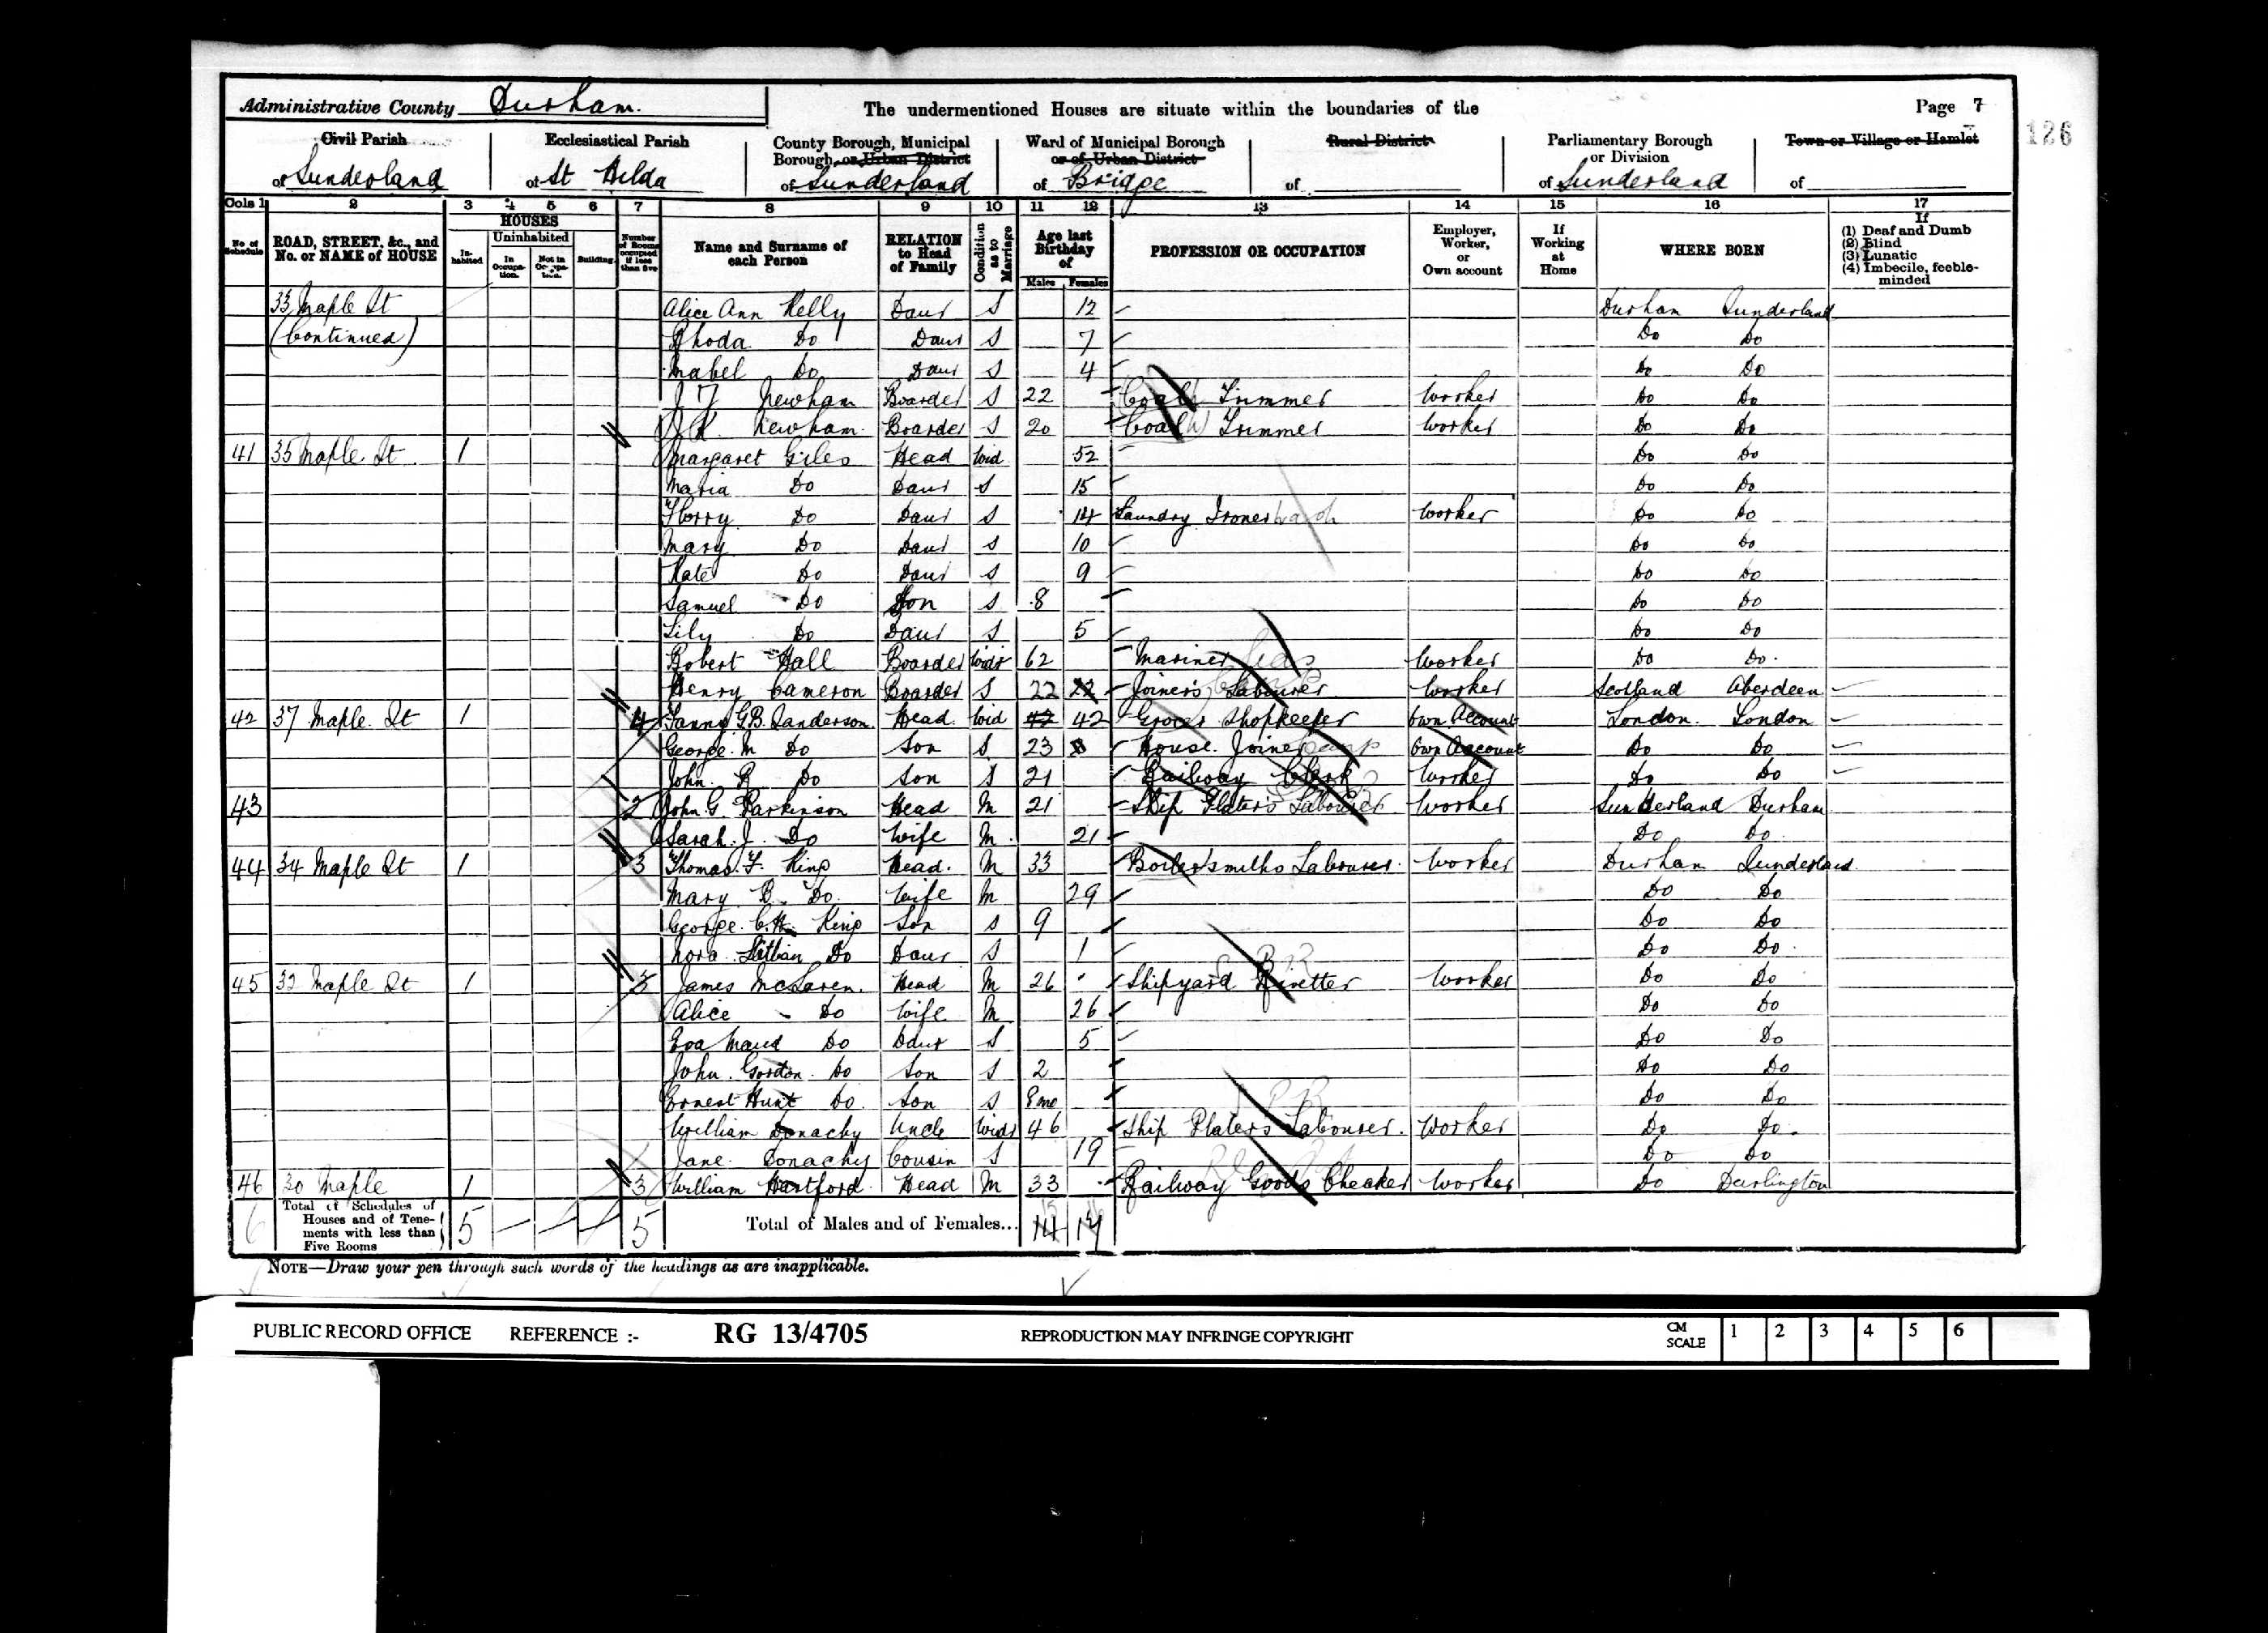 Administrative County Durham.
The undermentioned Houses are situate within the boundaries of the
Page 7
126
Civil Parish of Sunderland
Ecclesiastical Parish of St Hilda
County Borough, Municipal Borough, or Urban District of Sunderland
Ward of Municipal Borough or of Urban District of Bridge
Rural District of
Parliamentary Borough or Division of Sunderland
Town or Village or Hamlet of
Cols 1 2 3 4 5 6 7 8 9 10 11 12 13 14 15 16 17
No. of Schedule
ROAD, STREET, &c., and No. or NAME of HOUSE
HOUSES
Inhabited
Uninhabited
In Occupation.
Not in Occupation.
Building.
Number of Rooms occupied if less than five
Name and Surname of each Person
RELATION to Head of Family
Condition as to Marriage
Age last Birthday of
Males Females
PROFESSION OR OCCUPATION
Employer, Worker, or Own account
If Working at Home
WHERE BORN
If (1) Deaf and Dumb (2) Blind (3) Lunatic (4) Imbecile, feeble-minded
33 Maple St Alice Ann Kelly Daur S 12 Durham Sunderland
(Continued) Rhoda Do Daur S 7 Do Do
Mabel Do Daur S 4 Do Do
J Newham Boarder S 22 Coal Trimmer Worker Do Do
Newham Boarder S 20 Coal Trimmer Worker Do Do
41 35 Maple St 1 Margaret Giles Head Wid 52 Do Do
Maria Do Daur S 15 Do Do
Florry Do Daur S 14 Laundry Ironer Worker Do Do
Mary Do Daur S 10 Do Do
Kate Do Daur S 9 Do Do
Samuel Do Son S 8 Do Do
Lily Do Daur S 5 Do Do
Robert Hall Boarder Widr 62 Mariner Worker Do Do
Henry Cameron Boarder S 22 22 Joiners Labourer Worker Scotland Aberdeen
42 37 Maple St 1 4 Fanny G.B. Sanderson Head Wid 42 42 Grocer Shopkeeper Own Account London London
George M Do Son S 23 House Joiner Own Account Do Do
John R Do Son S 21 Railway Clerk Worker Do Do
43 2 John G. Parkinson Head M 21 Ship Platers Labourer Worker Sunderland Durham
Sarah J. Do Wife M 21 Do Do
44 34 Maple St 1 3 Thomas F. King Head M 33 Boilersmiths Labourer Worker Durham Sunderland
Mary B. Do Wife M 29 Do Do
George C.H. King Son S 9 Do Do
Nora Lillian Do Daur S 1 Do Do
45 32 Maple St 1 3 James McLaren Head M 26 Shipyard Rivetter Worker Do Do
Alice Do Wife M 26 Do Do
Eva Maud Do Daur S 5 Do Do
John Gordon Do Son S 2 Do Do
Ernest Hunt Do Son S 8 mo Do Do
William Donachy Uncle Widr 46 Ship Platers Labourer Worker Do Do
Jane Donachy Cousin S 19 Do Do
46 30 Maple 1 3 William Hartford Head M 33 Railway Goods Checker Worker Do Darlington
6 Total of Schedules of Houses and of Tenements with less than Five Rooms 5 5 Total of Males and of Females... 14 17
NOTE—Draw your pen through such words of the headings as are inapplicable.
PUBLIC RECORD OFFICE REFERENCE :- RG 13/4705 REPRODUCTION MAY INFRINGE COPYRIGHT CM SCALE 1 2 3 4 5 6